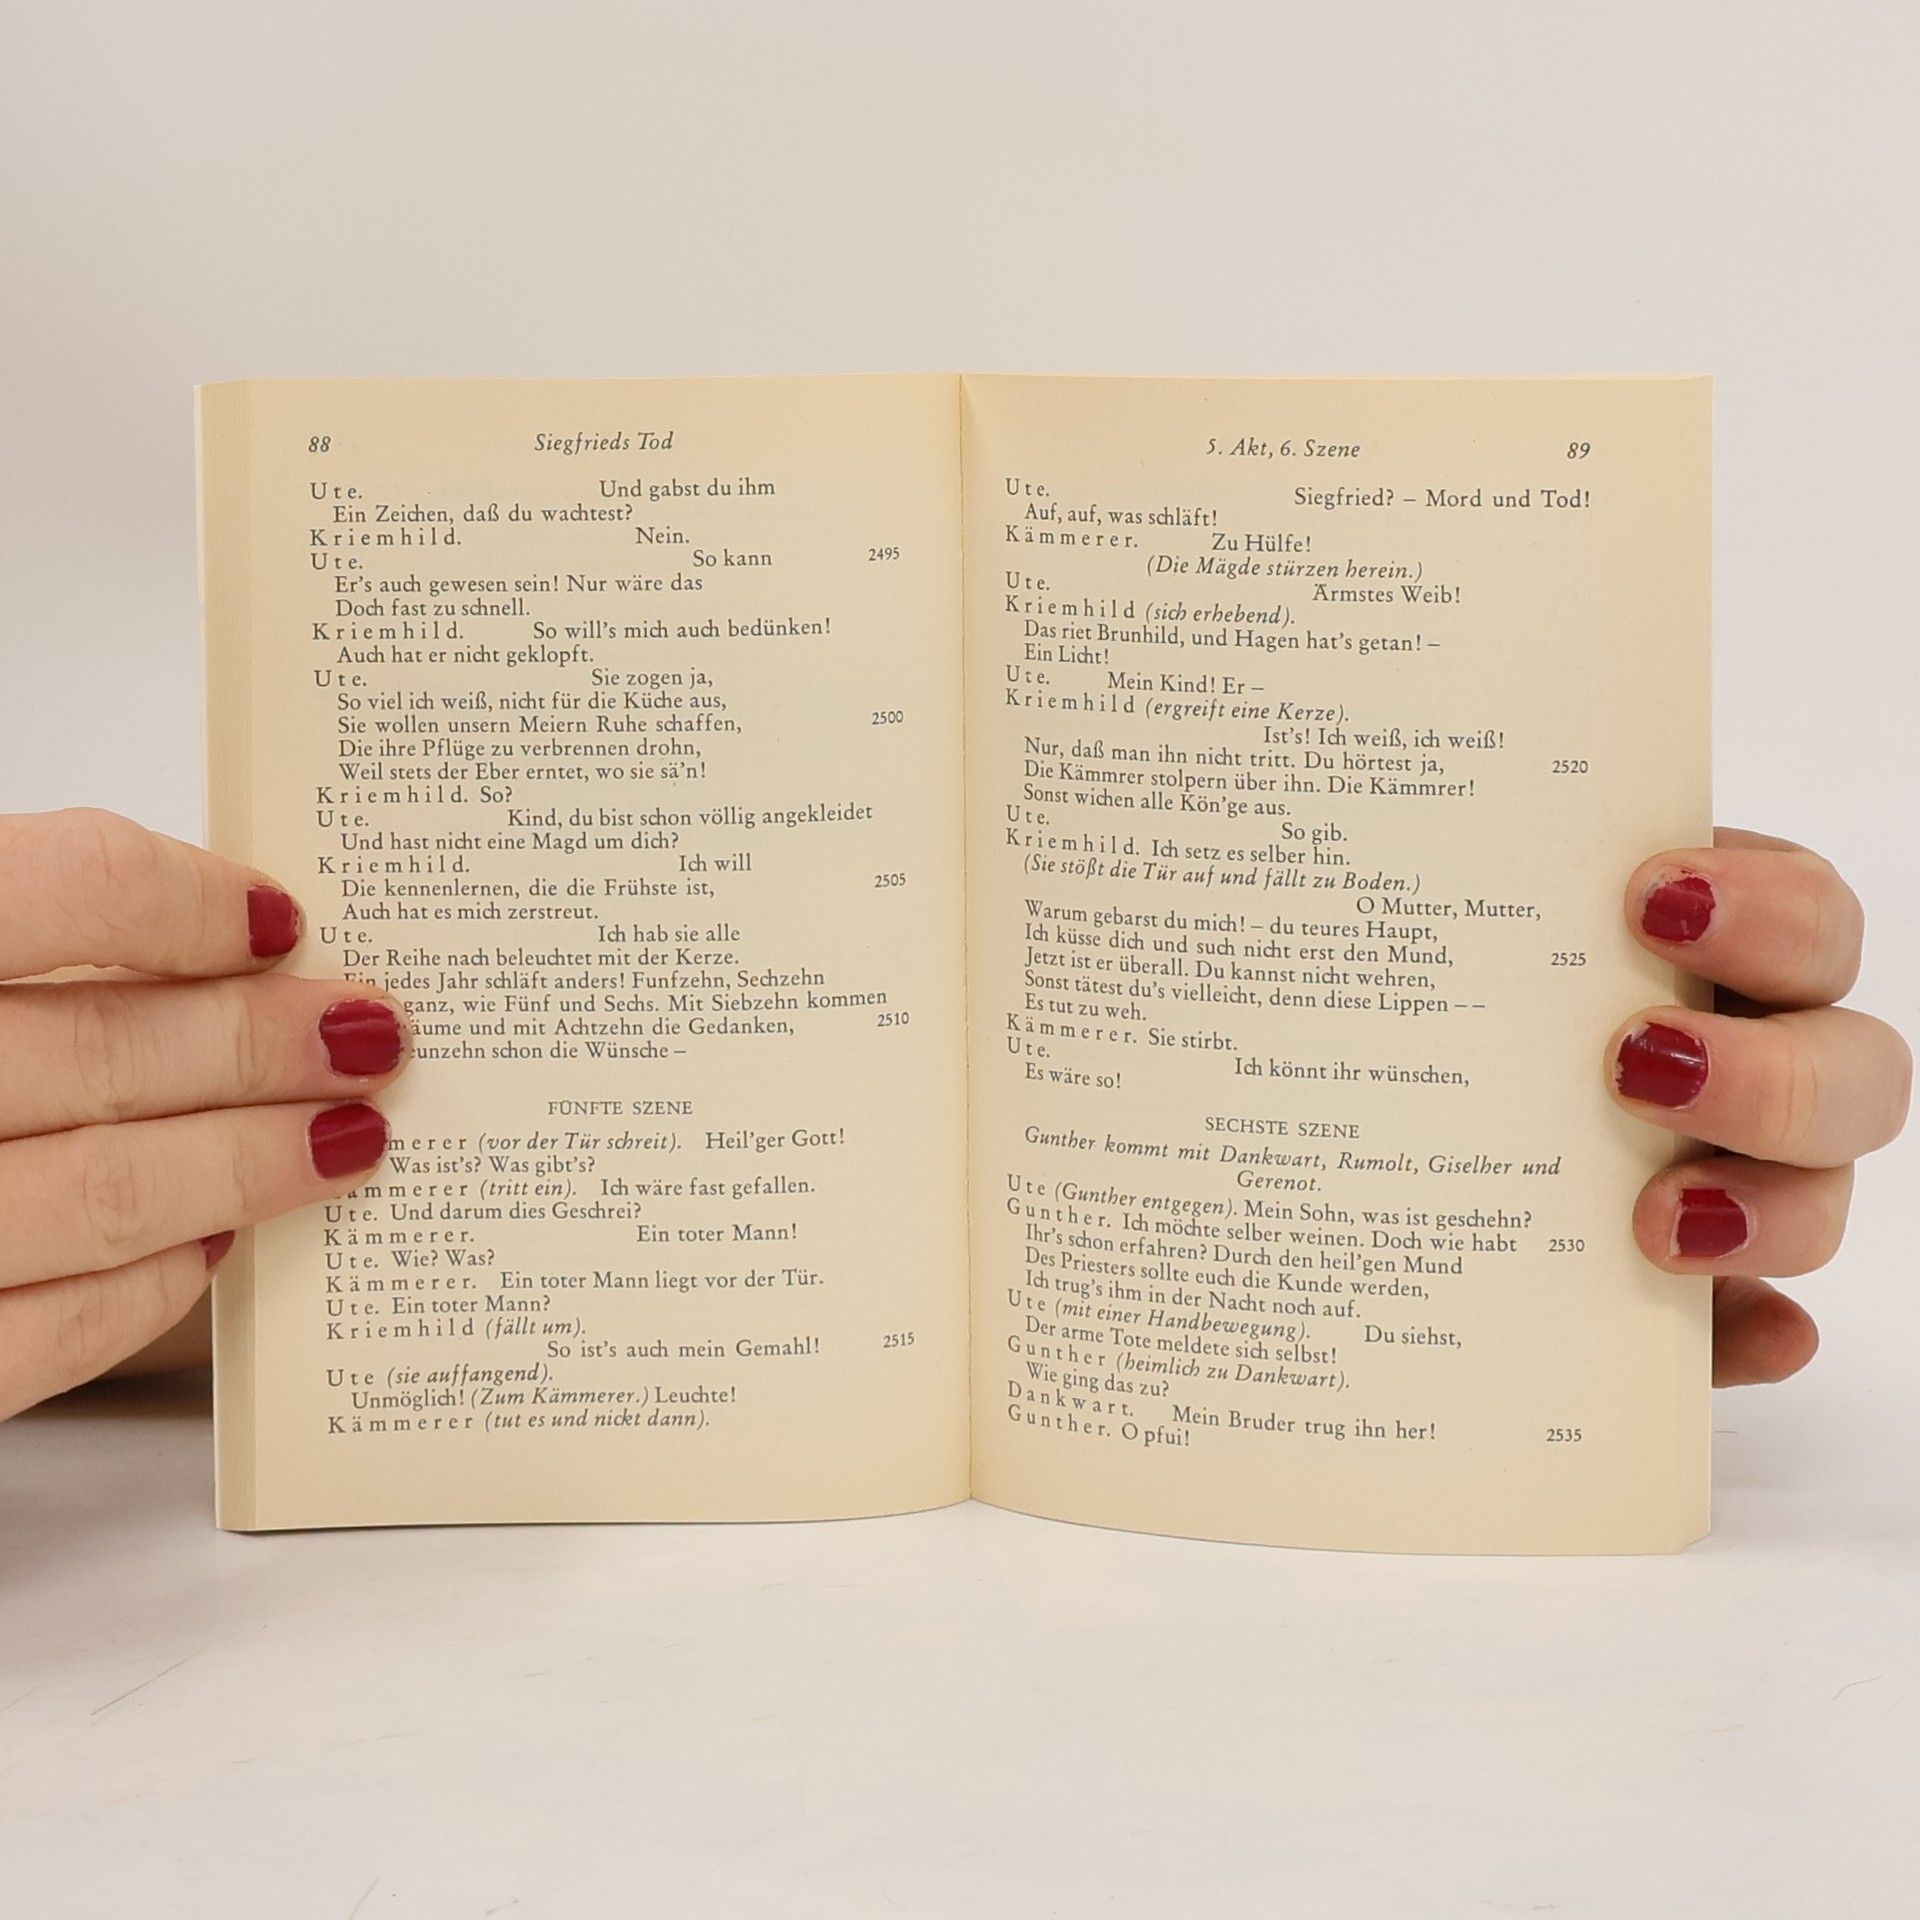 88 Siegfrieds Tod
Ute. Und gabst du ihm
Ein Zeichen, daß du wachtest?
Kriemhild. Nein.
Ute. So kann 2495
Er's auch gewesen sein! Nur wäre das
Doch fast zu schnell.
Kriemhild. So will's mich auch bedünken!
Auch hat er nicht geklopft.
Ute. Sie zogen ja,
So viel ich weiß, nicht für die Küche aus,
Sie wollen unsern Meiern Ruhe schaffen, 2500
Die ihre Pflüge zu verbrennen drohn,
Weil stets der Eber erntet, wo sie sä'n!
Kriemhild. So?
Ute. Kind, du bist schon völlig angekleidet
Und hast nicht eine Magd um dich?
Kriemhild. Ich will
Die kennenlernen, die die Frühste ist, 2505
Auch hat es mich zerstreut.
Ute. Ich hab sie alle
Der Reihe nach beleuchtet mit der Kerze.
Ein jedes Jahr schläft anders! Funfzehn, Sechzehn
ganz, wie Fünf und Sechs. Mit Siebzehn kommen
äume und mit Achtzehn die Gedanken, 2510
eunzehn schon die Wünsche –
FÜNFTE SZENE
merer (vor der Tür schreit). Heil'ger Gott!
Was ist's? Was gibt's?
ämmerer (tritt ein). Ich wäre fast gefallen.
Ute. Und darum dies Geschrei?
Kämmerer. Ein toter Mann!
Ute. Wie? Was?
Kämmerer. Ein toter Mann liegt vor der Tür.
Ute. Ein toter Mann?
Kriemhild (fällt um).
So ist's auch mein Gemahl! 2515
Ute (sie auffangend).
Unmöglich! (Zum Kämmerer.) Leuchte!
Kämmerer (tut es und nickt dann).
5. Akt, 6. Szene 89
Ute. Siegfried? – Mord und Tod!
Auf, auf, was schläft!
Kämmerer. Zu Hülfe!
(Die Mägde stürzen herein.)
Ute. Ärmstes Weib!
Kriemhild (sich erhebend).
Das riet Brunhild, und Hagen hat's getan! –
Ein Licht!
Ute. Mein Kind! Er –
Kriemhild (ergreift eine Kerze).
Ist's! Ich weiß, ich weiß!
Nur, daß man ihn nicht tritt. Du hörtest ja, 2520
Die Kämmrer stolpern über ihn. Die Kämmrer!
Sonst wichen alle Kön'ge aus.
Ute. So gib.
Kriemhild. Ich setz es selber hin.
(Sie stößt die Tür auf und fällt zu Boden.)
O Mutter, Mutter,
Warum gebarst du mich! – du teures Haupt,
Ich küsse dich und such nicht erst den Mund, 2525
Jetzt ist er überall. Du kannst nicht wehren,
Sonst tätest du's vielleicht, denn diese Lippen – –
Es tut zu weh.
Kämmerer. Sie stirbt.
Ute. Ich könnt ihr wünschen,
Es wäre so!
SECHSTE SZENE
Gunther kommt mit Dankwart, Rumolt, Giselher und
Gerenot.
Ute (Gunther entgegen). Mein Sohn, was ist geschehn?
Gunther. Ich möchte selber weinen. Doch wie habt 2530
Ihr's schon erfahren? Durch den heil'gen Mund
Des Priesters sollte euch die Kunde werden,
Ich trug's ihm in der Nacht noch auf.
Ute (mit einer Handbewegung). Du siehst,
Der arme Tote meldete sich selbst!
Gunther (heimlich zu Dankwart).
Wie ging das zu?
Dankwart. Mein Bruder trug ihn her! 2535
Gunther. O pfui!